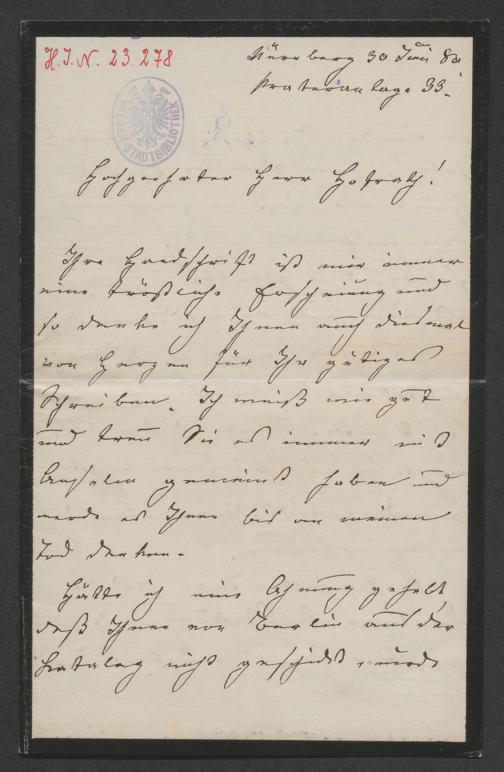 H.I.N. 23.278
Nürnberg 30 Juni 80
Prateranlage 33.
WIENER STADTBIBLIOTHEK
Hochgeehrter Herr Hofrath!
Ihre Handschrift ist mir immer
eine tröstliche Erscheinung und
so danke ich Ihnen auch diesmal
von Herzen für Ihr gütiges
Schreiben. Ich weiß wie gut
und treu Sie es immer mit
Anselm gemeint haben und
werde es Ihnen bis an meinen
Tod danken.
Hätte ich eine Ahnung gehabt,
daß Ihnen von Berlin aus der
Katalog nicht geschickt würde